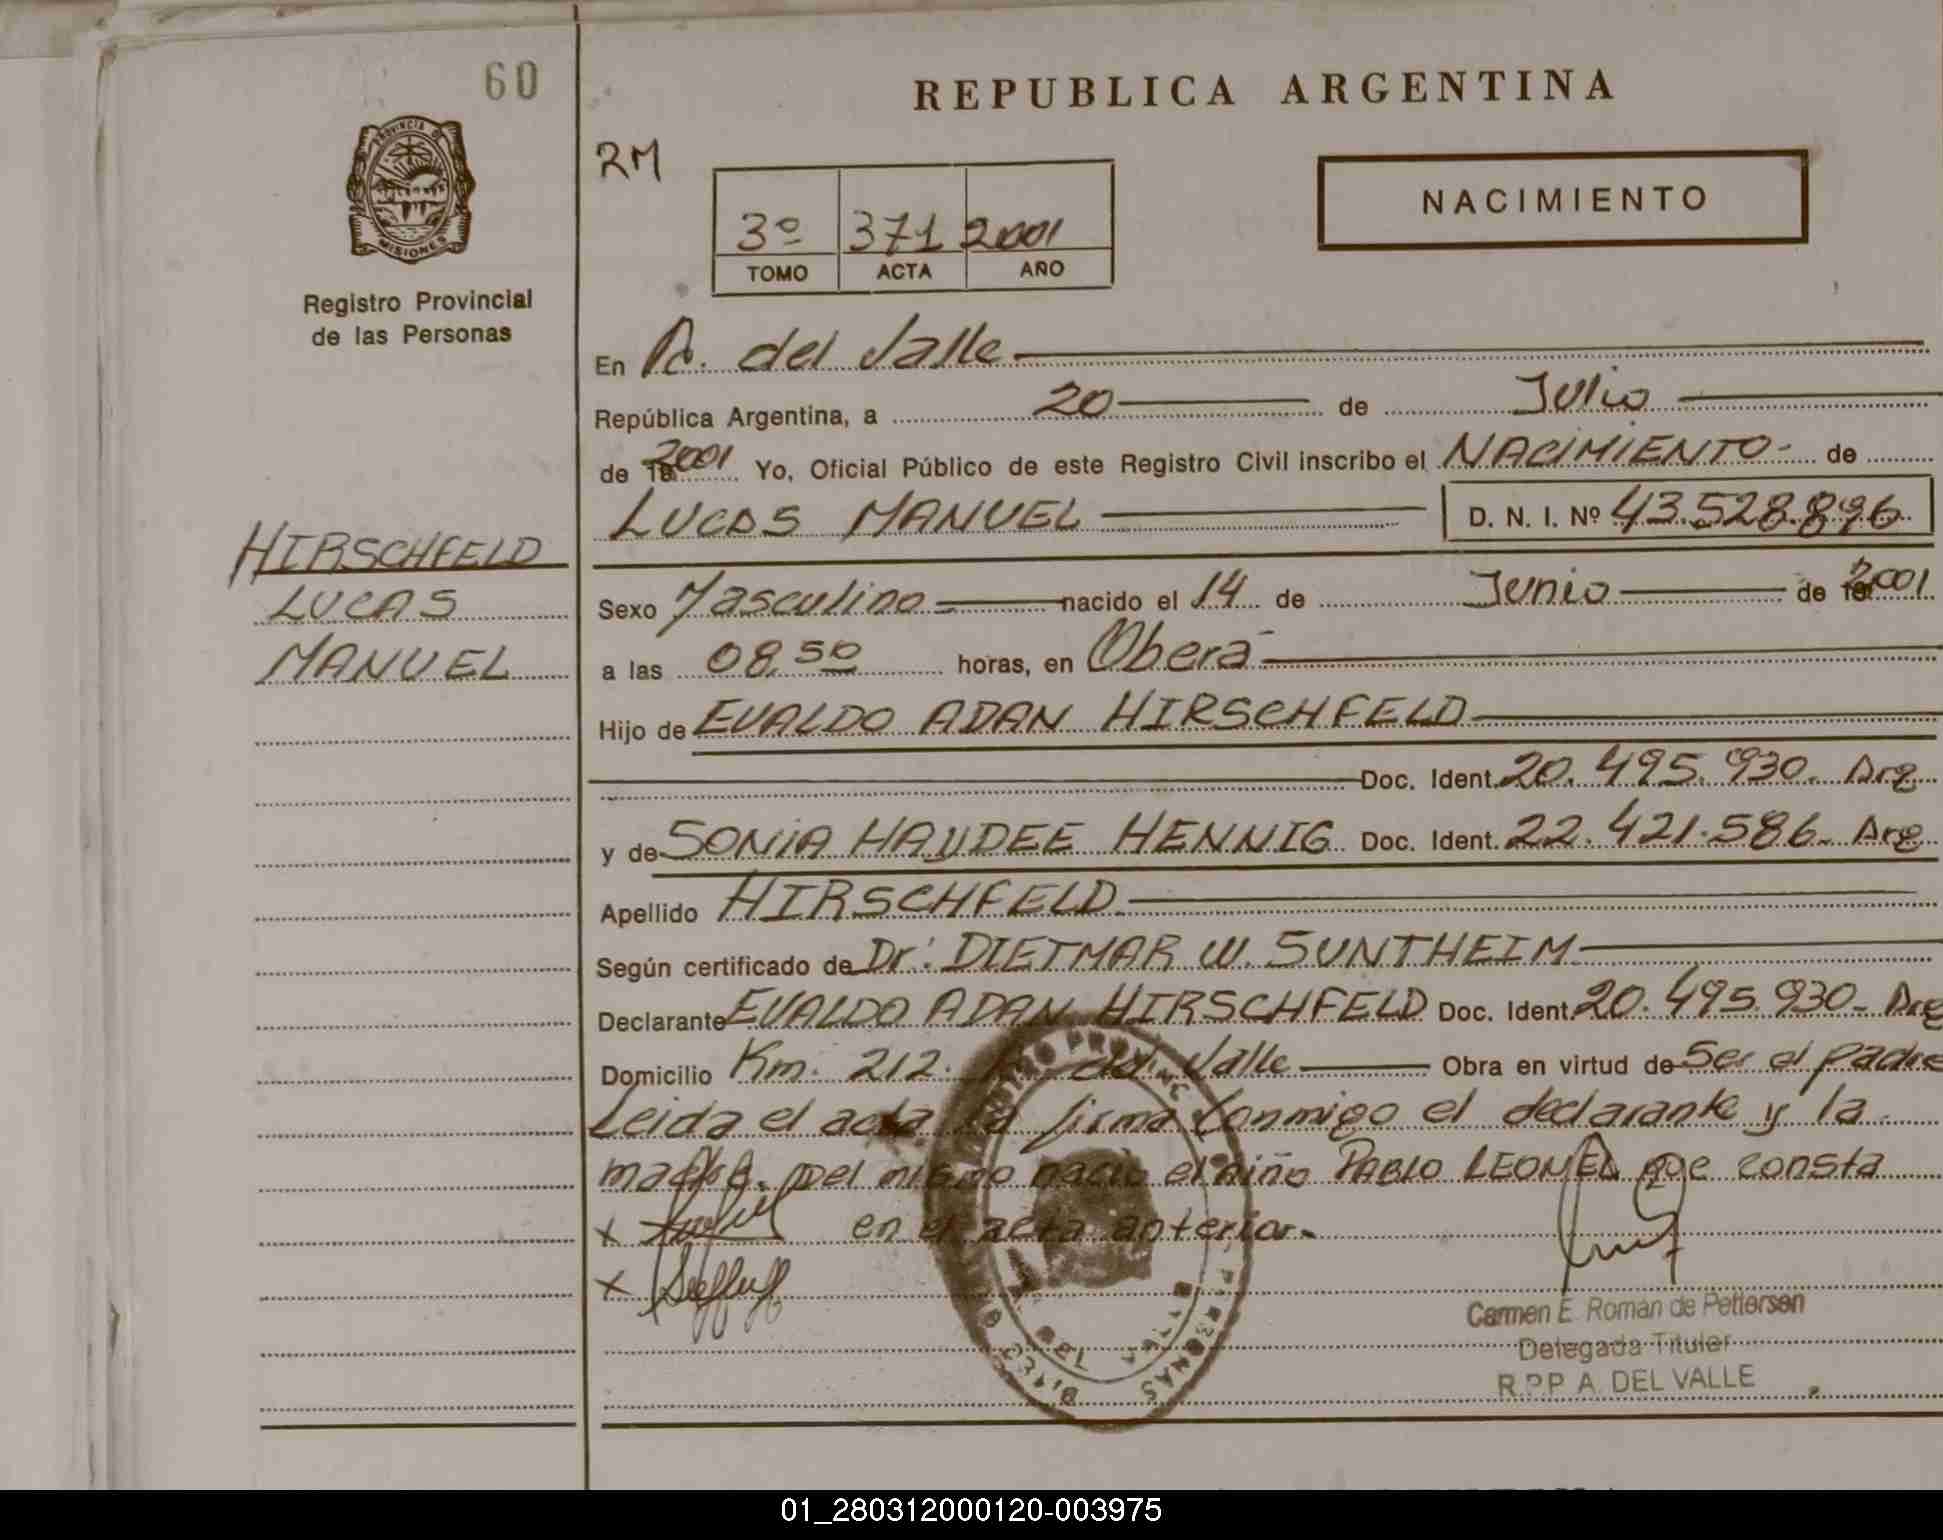 60
REPUBLICA ARGENTINA
PROVINCIA DE
MISIONES
Registro Provincial
de las Personas
RM
3º 371 2001
TOMO ACTA AÑO
NACIMIENTO
En A. del Valle
República Argentina, a 20 de Julio
de 2001 Yo, Oficial Público de este Registro Civil inscribo el NACIMIENTO - de
LUCAS MANUEL D. N. I. Nº 43.528.896
HIRSCHFELD
LUCAS
MANUEL
Sexo Masculino nacido el 14 de Junio de 2001
a las 08,50 horas, en Oberá
Hijo de EVALDO ADAN HIRSCHFELD
Doc. Ident. 20.495.930. Arg
y de SONIA HAYDEE HENNIG Doc. Ident. 22.421.586- Arg
Apellido HIRSCHFELD
Según certificado de Dr: DIETMAR W. SUNTHEIM
Declarante EVALDO ADAN HIRSCHFELD Doc. Ident. 20.495.930- Arg
Domicilio Km. 212. A. del Valle Obra en virtud de Ser el padre
Leida el acta la firma conmigo el declarante y la
madre. Del mismo nació el niño PABLO LEONEL que consta
x en el acta anterior.-
x
Carmen E. Román de Pettersen
Delegada Titular
R.P.P. A. DEL VALLE
01_280312000120-003975